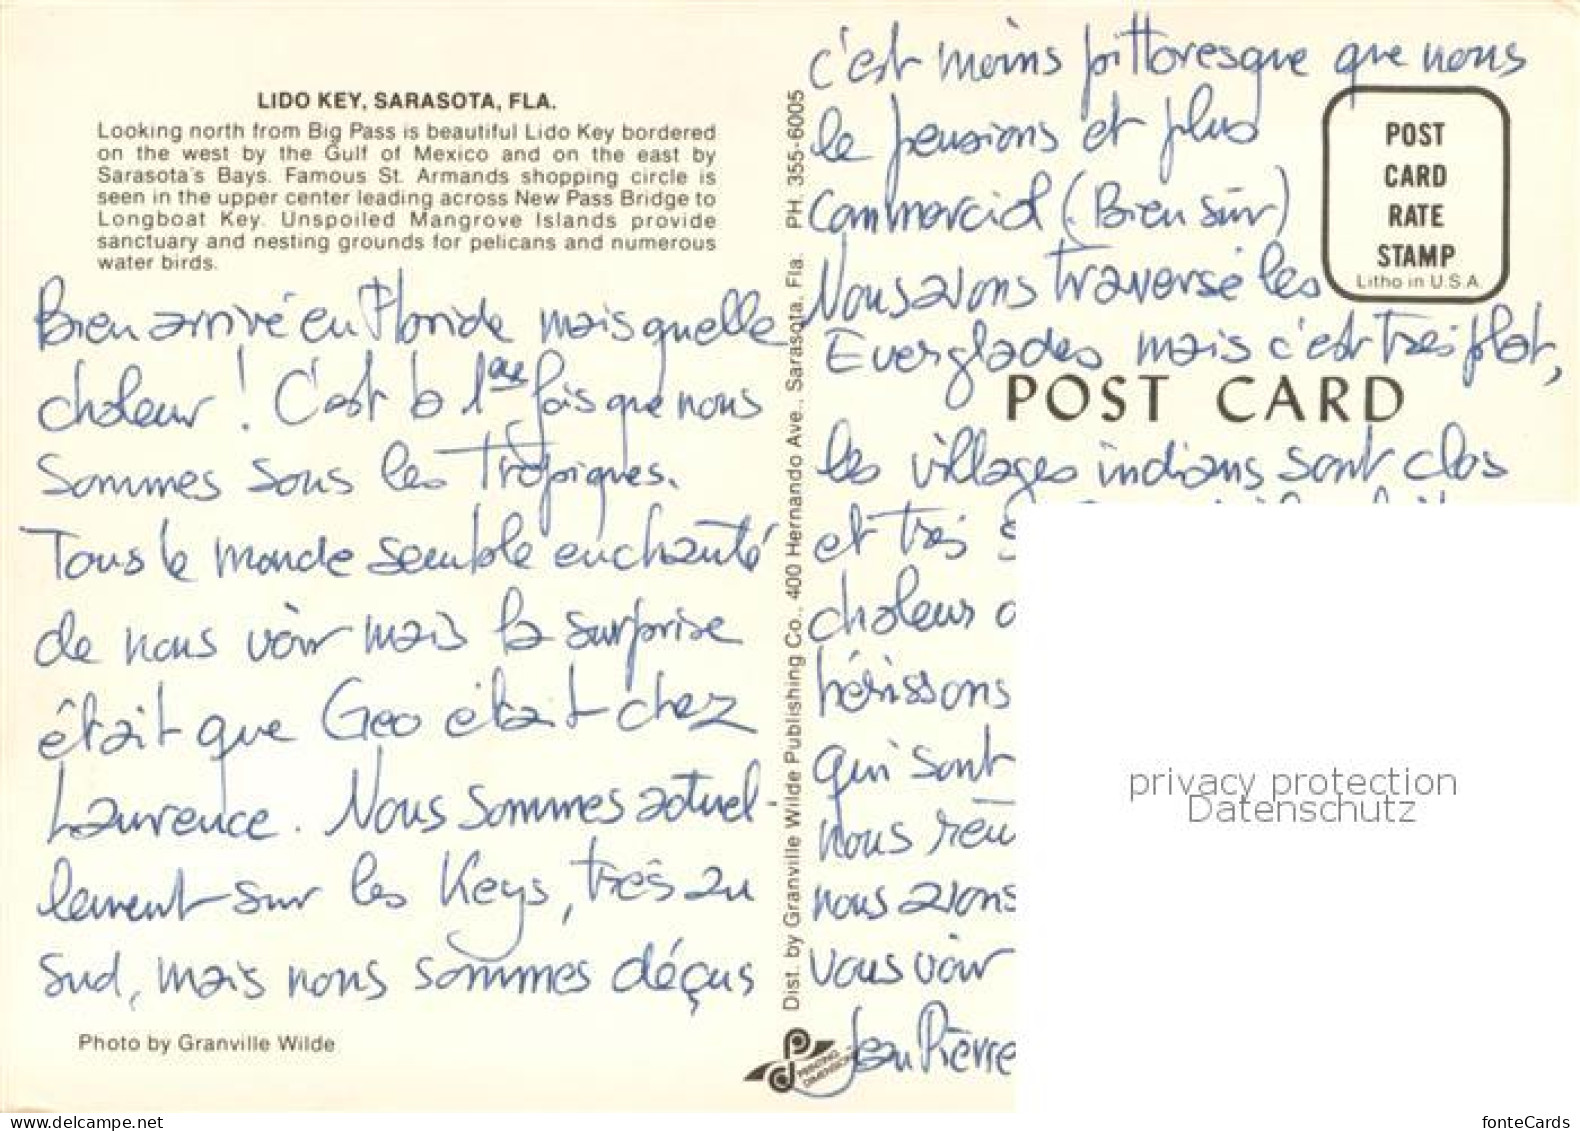 LIDO KEY, SARASOTA, FLA.
Looking north from Big Pass is beautiful Lido Key bordered
on the west by the Gulf of Mexico and on the east by
Sarasota's Bays. Famous St. Armands shopping circle is
seen in the upper center leading across New Pass Bridge to
Longboat Key. Unspoiled Mangrove Islands provide
sanctuary and nesting grounds for pelicans and numerous
water birds.
Bien arrivé en Floride mais quelle
chaleur ! C'est la 1ère fois que nous
sommes sous les Tropiques.
Tous le monde semble enchanté
de nous voir mais la surprise
était que Geo était chez
Laurence. Nous sommes actuel-
lement sur les Keys, très au
Sud, mais nous sommes déçus
Photo by Granville Wilde
Dist. by Granville Wilde Publishing Co., 400 Hernando Ave., Sarasota, Fla. PH. 355-6005
PRINTING DIMENSIONS
c'est moins pittoresque que nous
le pensions et plus
commercial (Bien sûr)
Nous avons traversé les
Everglades mais c'est très plat,
les villages indians sont clos
et très
chaleur
hérissons
qui sont
nous
nous avons
vous voir
Jean Pierre
POST
CARD
RATE
STAMP
Litho in U.S.A.
POST CARD
privacy protection
Datenschutz
fonteCards